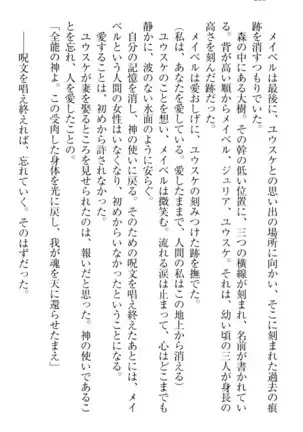 メイベルは最後に、ユウスケとの思い出の場所に向かい、そこに刻まれた過去の痕
跡を消すつもりでいた。
森の中にある大樹。その幹の低い位置に、三つの横線が刻まれ、名前が書かれてい
る。背が高い順からメイベル、ジュリア、ユウスケ。それは、幼い頃の三人が身長の
高さを刻んだ跡だった。
メイベルは愛おしげに、ユウスケの刻みつけた跡を撫でた。
（私は、あなたを愛している。愛したままで、人間の私はこの地上から消える）
ユウスケのことを想い、メイベルは微笑む。流れる涙は止まって、心はどこまでも
静かに、波のない水面のように安らぐ。
自分の記憶を消し、神の使いに戻る。そのための呪文を唱え終えたあとには、メイ
ベルという人間の女性はいなくなり、初めからいなかったということになる。
愛することは、初めから許されなかった。
ユウスケが妻を娶るところを見せられたのは、報いだと思った。神の使いであるこ
とを忘れ、人を愛したことの。
――呪文を唱え終えれば、忘れていく。そのはずだった。
「全能の神よ。この受肉した身体を光に戻し、我が魂を天に還らせたまえ」